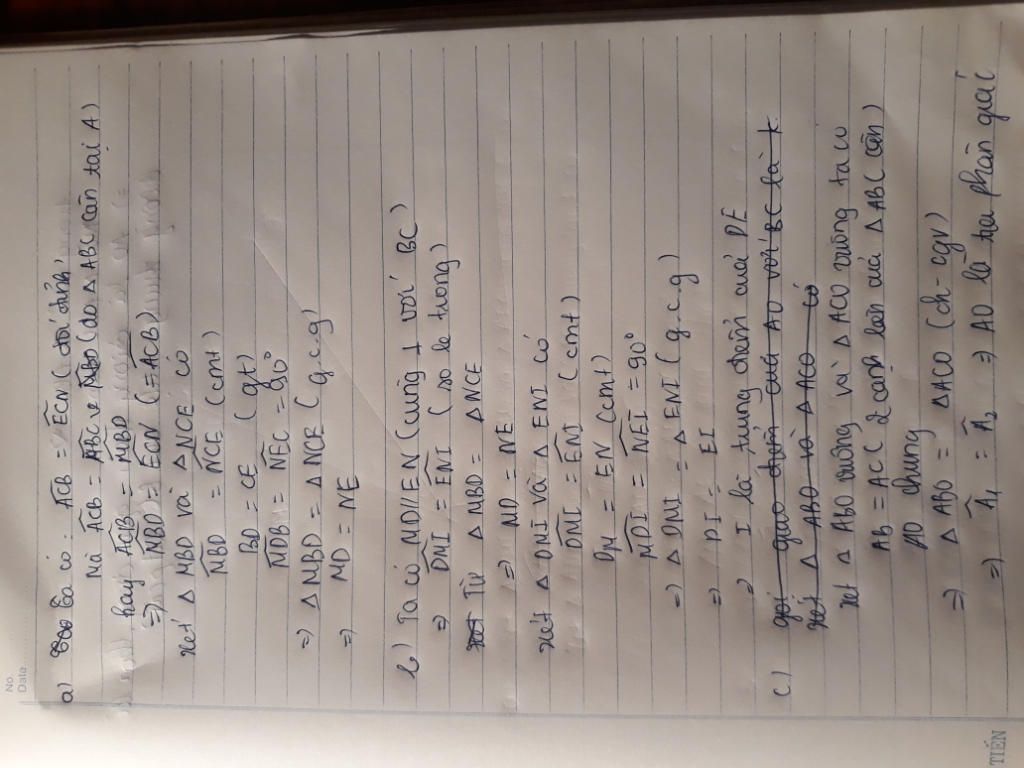 No.
Date
a) Ta có: ACB = ECN (đối đỉnh)
Mà ACB = ABC (do △ ABC cân tại A)
hay ACB = MBD
=> MBD = ECN (= ACB)
xét △ MBD và △ NCE có
MBD = NCE (cmt)
BD = CE (gt)
MDB = NEC = 90°
=> △ MBD = △ NCE (g.c.g)
=> MD = NE
b) Ta có MD // EN (cùng ⊥ với BC)
=> DMI = ENI (so le trong)
Từ △ MBD = △ NCE
=> MD = NE
xét △ DMI và △ ENI có
DMI = ENI (cmt)
DM = EN (cmt)
MDI = NEI = 90°
=> △ DMI = △ ENI (g.c.g)
=> DI = EI
=> I là trung điểm của DE
c) gọi giao điểm của AO với BC là K
xét △ ABO và △ ACO có
xét △ ABO vuông và △ ACO vuông ta có
AB = AC (2 cạnh bên của △ ABC cân)
AO chung
=> △ ABO = △ ACO (ch - cgv)
=> A₁ = A₂ => AO là tia phân giác
TIẾN